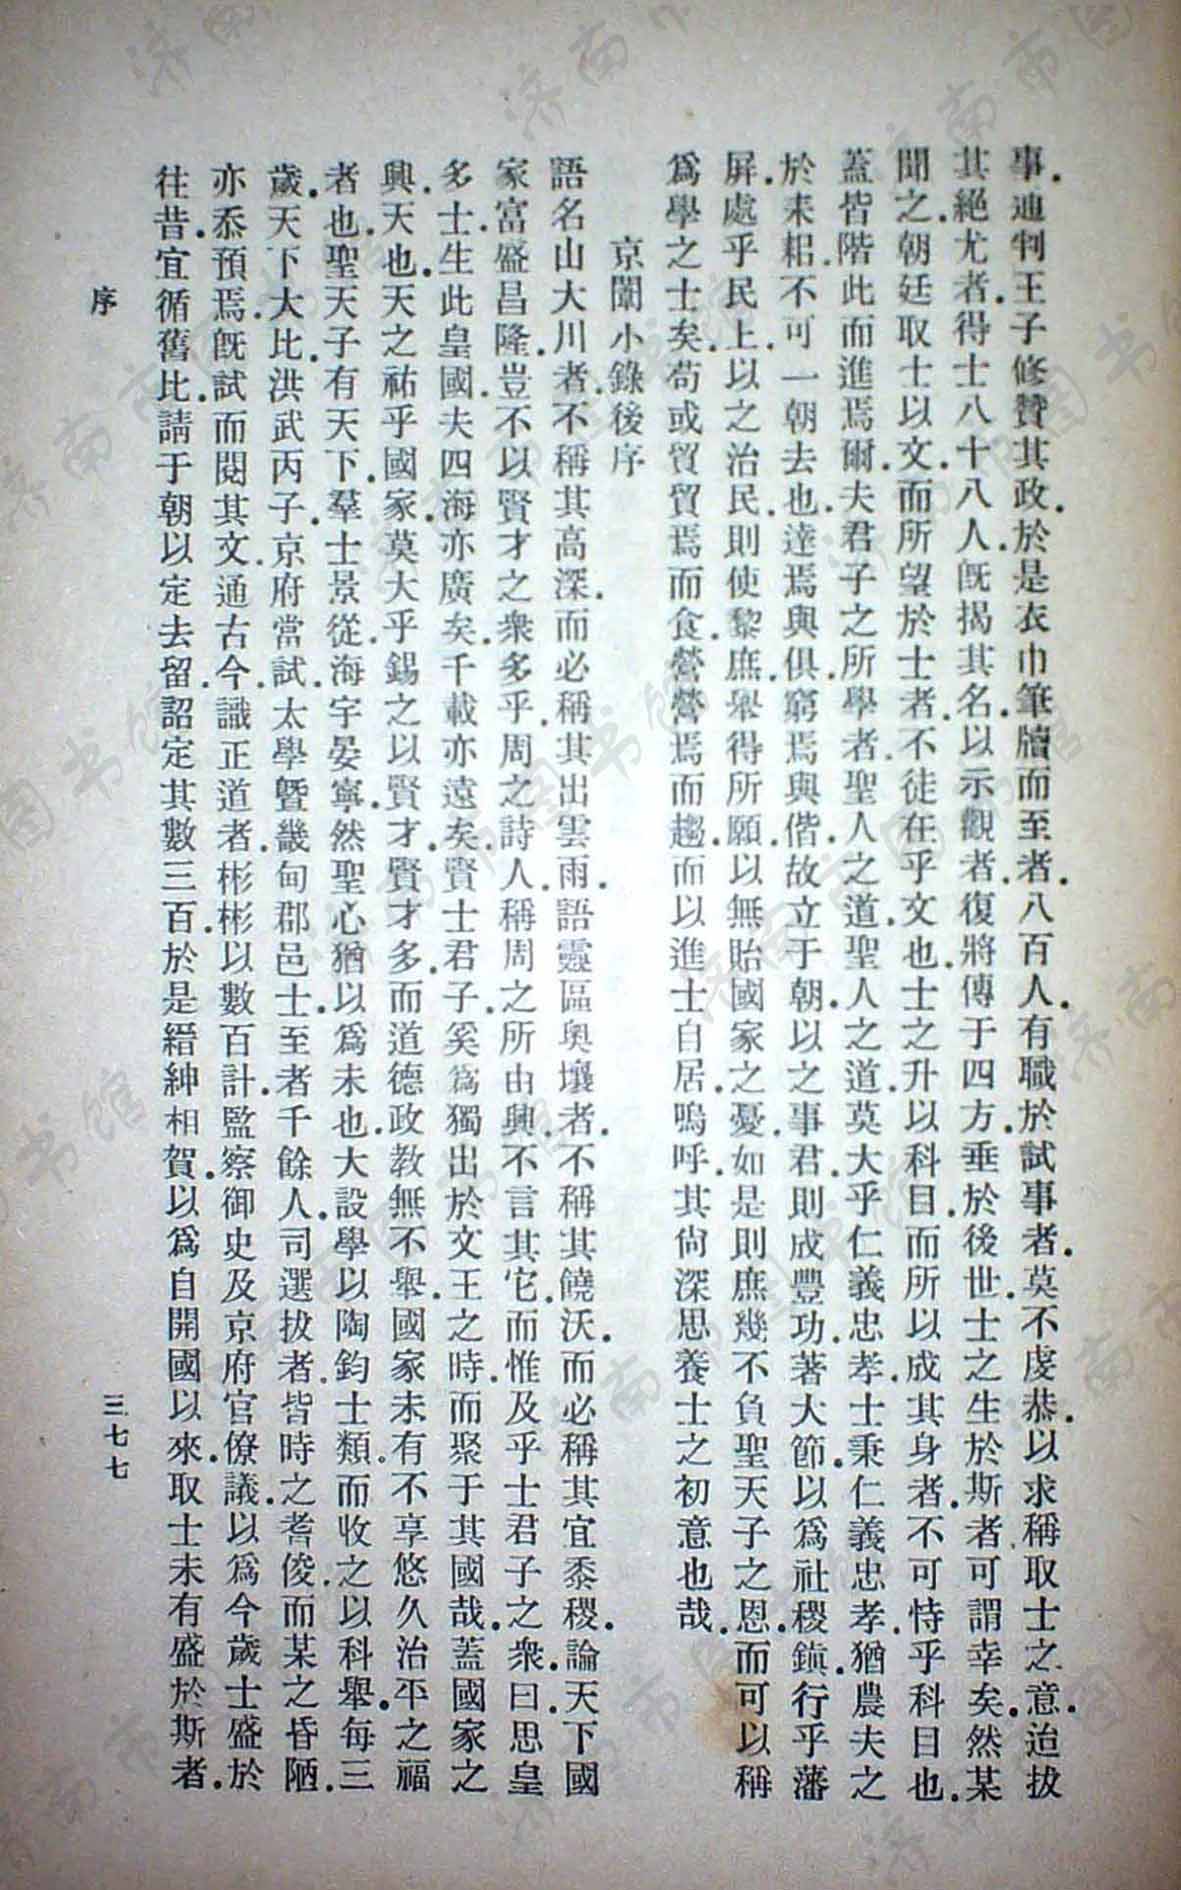 事通判王子修贊其政於是衣巾筆牘而至者八百人有職於試事者莫不虔恭以求稱取士之意迨拔
其絕尤者得士八十八人既揭其名以示觀者復將傳于四方垂於後世士之生於斯者可謂幸矣然某
聞之朝廷取士以文而所望於士者不徒在乎文也士之升以科目而所以成其身者不可恃乎科目也
蓋皆階此而進焉爾夫君子之所學者聖人之道聖人之道莫大乎仁義忠孝士秉仁義忠孝猶農夫之
於耒耜不可一朝去也達焉與俱窮焉與偕故立于朝以之事君則成豐功著大節以爲社稷鎮行乎藩
屏處乎民上以之治民則使黎庶舉得所願以無貽國家之憂如是則庶幾不負聖天子之恩而可以稱
爲學之士矣苟或貿貿焉而食營營焉而趨而以進士自居嗚呼其尙深思養士之初意也哉
京闈小錄後序
語名山大川者不稱其高深而必稱其出雲雨語靈區奧壤者不稱其饒沃而必稱其宜黍稷論天下國
家富盛昌隆豈不以賢才之衆多乎周之詩人稱周之所由興不言其它而惟及乎士君子之衆曰思皇
多士生此皇國夫四海亦廣矣千載亦遠矣賢士君子奚爲獨出於文王之時而聚于其國哉蓋國家之
興天也天之祐乎國家莫大乎錫之以賢才賢才多而道德政教無不舉國家未有不享悠久治平之福
者也聖天子有天下羣士景從海宇晏寧然聖心猶以爲未也大設學以陶鈞士類而收之以科舉每三
歲天下大比洪武丙子京府當試太學曁畿甸郡邑士至者千餘人司選拔者皆時之耆俊而某之昏陋
亦忝預焉既試而閱其文通古今識正道者彬彬以數百計監察御史及京府官僚議以爲今歲士盛於
往昔宜循舊比請于朝以定去留詔定其數三百於是縉紳相賀以爲自開國以來取士未有盛於斯者
序
三七七
濟南市图书馆